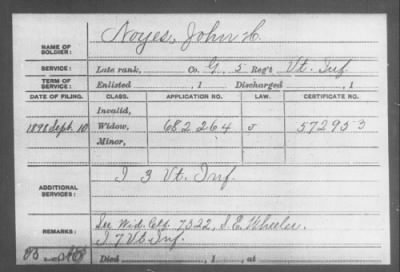 NAME OF SOLDIER: Noyes, John H.
SERVICE: Late rank, Co. G, 5 Reg't Vt. Inf.
TERM OF SERVICE: Enlisted , 1 Discharged , 1
DATE OF FILING. CLASS. APPLICATION NO. LAW. CERTIFICATE NO.
Invalid,
1898 Sept. 10 Widow, 682264 J 572953
Minor,
ADDITIONAL SERVICES: I 3 Vt. Inf.
REMARKS: See Wid. Ctf. 7322, S. E. Wheeler
I 7 Vt Inf.
Died , 1 , at